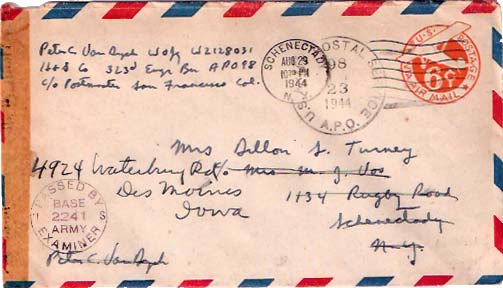 Peter C. Van Nuys WOJG W2128031
H&S Co 323d Engr Bn APO 98
c/o Postmaster San Francisco Cal.
SCHENECTADY
AUG 29
1944
N.Y.
U.S. POSTAL SERVICE
98
23
1944
A.P.O.
U.S. POSTAGE
6¢
VIA AIR MAIL
Mrs Dillon S. Turney
4924 Waterbury Rd c/o Mrs M. J. Vos
Des Moines 1134 Rugby Road
Iowa Schenectady
N.Y.
PASSED BY
BASE
2241
ARMY
EXAMINER
U S
Peter C.